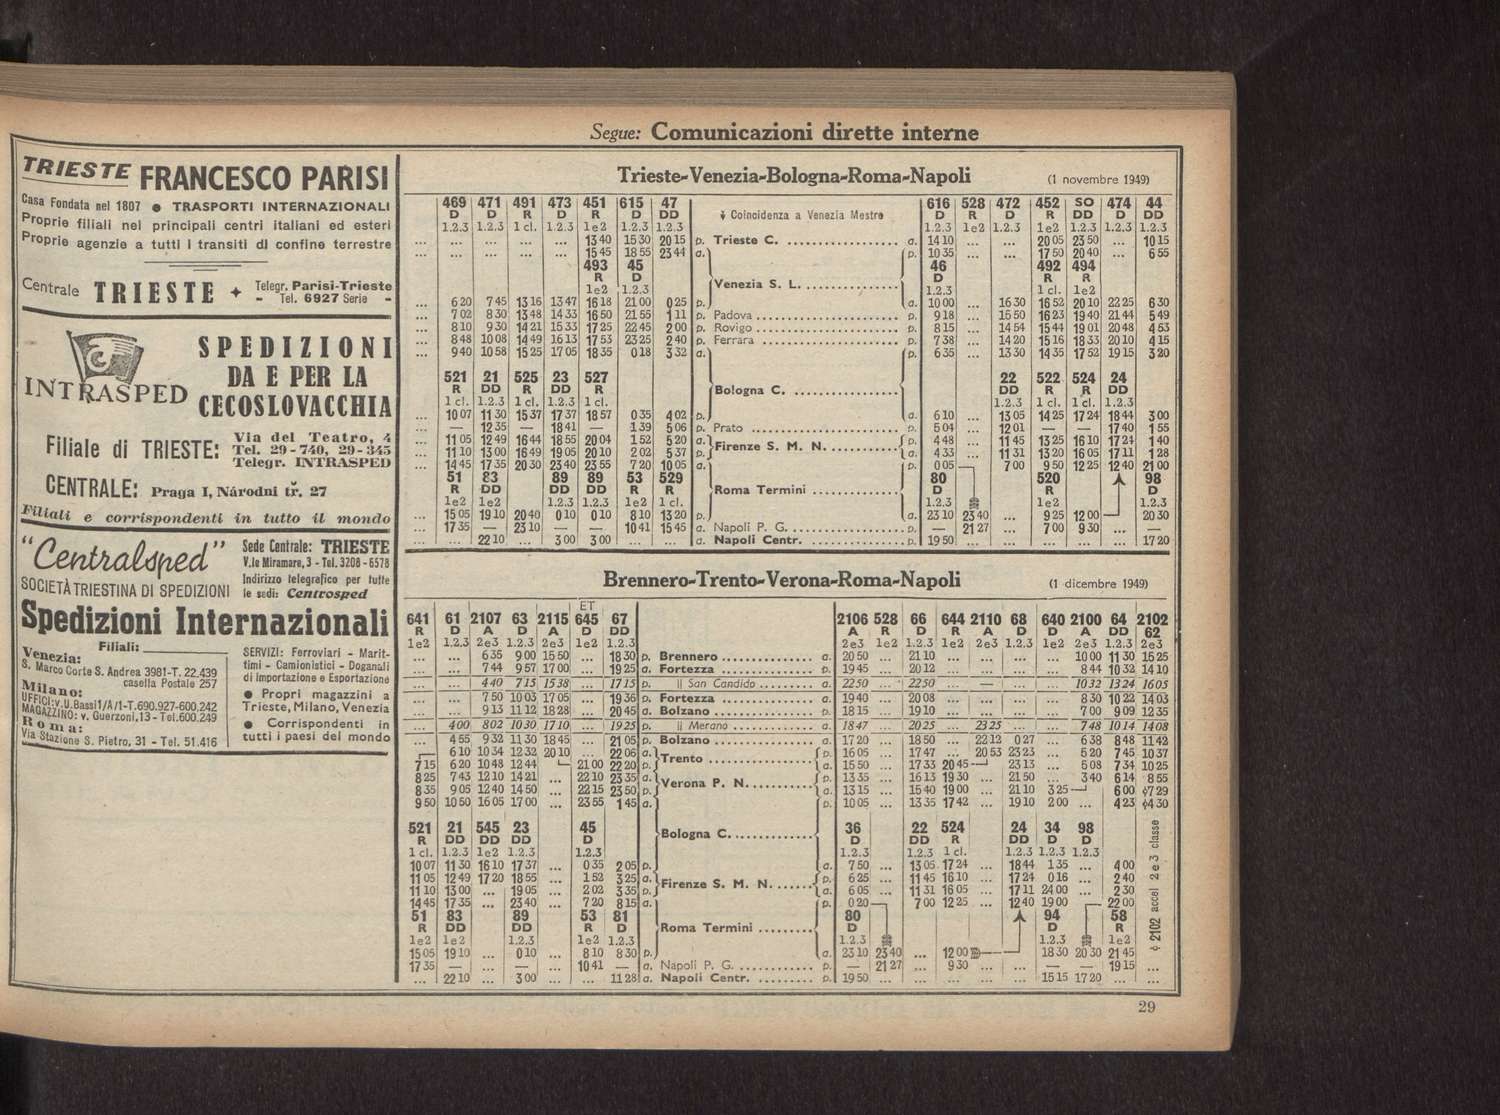 Segue: Comunicazioni dirette interne
TRIESTE FRANCESCO PARISI
Casa Fondata nel 1807 ● TRASPORTI INTERNAZIONALI
Proprie filiali nei principali centri italiani ed esteri
Proprie agenzie a tutti i transiti di confine terrestre
Centrale TRIESTE + Telegr. Parisi-Trieste
- Tel. 6927 Serie -
INTRASPED
SPEDIZIONI
DA E PER LA
CECOSLOVACCHIA
Filiale di TRIESTE: Via del Teatro, 4
Tel. 29-740, 29-345
Telegr. INTRASPED
CENTRALE: Praga I, Národni tř. 27
Filiali e corrispondenti in tutto il mondo
"Centralsped"
SOCIETÀ TRIESTINA DI SPEDIZIONI
Sede Centrale: TRIESTE
V.le Miramare, 3 - Tel. 3208 - 6578
Indirizzo telegrafico per tutte
le sedi: Centrosped
Spedizioni Internazionali
Filiali:
Venezia:
S. Marco Corte S. Andrea 3981-T. 22.439
casella Postale 257
Milano:
UFFICI: v.U.Bassi 1/A/1-T.690.927-600.242
MAGAZZINO: v. Guerzoni, 13 - Tel. 600.249
Roma:
Via Stazione S. Pietro, 31 - Tel. 51.416
SERVIZI: Ferroviari - Marit-
timi - Camionistici - Doganali
di Importazione e Esportazione
● Propri magazzini a
Trieste, Milano, Venezia
● Corrispondenti in
tutti i paesi del mondo
Trieste-Venezia-Bologna-Roma-Napoli (1 novembre 1949)
469 471 491 473 451 615 47 616 528 472 452 SO 474 44
D D R D R D DD ⍖ Coincidenza a Venezia Mestre D R D R DD D DD
1.2.3 1.2.3 1 cl. 1.2.3 1e2 1.2.3 1.2.3 1.2.3 1e2 1.2.3 1e2 1.2.3 1.2.3 1.2.3
... ... ... ... ... 13 40 15 30 20 15 p. Trieste C. a. 14 10 ... ... 20 05 23 50 ... 10 15
... ... ... ... ... 15 45 18 55 23 44 a. p. 10 35 ... ... 17 50 20 40 ... 6 55
493 45 46 492 494
R D D R R
1e2 1.2.3 Venezia S. L. 1.2.3 1 cl. 1e2
... 6 20 7 45 13 16 13 47 16 18 21 00 0 25 p. a. 10 00 ... 16 30 16 52 20 10 22 25 6 30
... 7 02 8 30 13 48 14 33 16 50 21 55 1 11 p. Padova p. 9 18 ... 15 50 16 23 19 40 21 44 5 49
... 8 10 9 30 14 21 15 33 17 25 22 45 2 00 p. Rovigo p. 8 15 ... 14 54 15 44 19 01 20 48 4 53
... 8 48 10 08 14 49 16 13 17 53 23 25 2 40 p. Ferrara p. 7 38 ... 14 20 15 16 18 33 20 10 4 15
... 9 40 10 58 15 25 17 05 18 35 0 18 3 32 a. p. 6 35 ... 13 30 14 35 17 52 19 15 3 20
521 21 525 23 527 22 522 524 24
R DD R DD R Bologna C. DD R R DD
1 cl. 1.2.3 1 cl. 1.2.3 1 cl. 1.2.3 1 cl. 1 cl. 1.2.3
... 10 07 11 30 15 37 17 37 18 57 0 35 4 02 p. a. 6 10 ... 13 05 14 25 17 24 18 44 3 00
... — 12 35 — 18 41 — 1 39 5 06 p. Prato p. 5 04 ... 12 01 — — 17 40 1 55
... 11 05 12 49 16 44 18 55 20 04 1 52 5 20 a. Firenze S. M. N. p. 4 48 ... 11 45 13 25 16 10 17 24 1 40
... 11 10 13 00 16 49 19 05 20 10 2 02 5 37 p. a. 4 33 ... 11 31 13 20 16 05 17 11 1 28
... 14 45 17 35 20 30 23 40 23 55 7 20 10 05 a. p. 0 05 7 00 9 50 12 25 12 40 21 00
51 83 89 89 53 529 80 520 98
R DD DD DD R R Roma Termini D R D
1e2 1e2 1.2.3 1.2.3 1e2 1 cl. 1.2.3 1e2 1.2.3
... 15 05 19 10 20 40 0 10 0 10 8 10 13 20 p. a. 23 10 23 40 ... 9 25 12 00 20 30
... 17 35 — 23 10 — — 10 41 15 45 a. Napoli P. G. p. — 21 27 ... 7 00 9 30 ... —
... ... 22 10 ... 3 00 3 00 ... ... a. Napoli Centr. p. 19 50 ... ... ... ... ... 17 20
Brennero-Trento-Verona-Roma-Napoli (1 dicembre 1949)
ET
641 61 2107 63 2115 645 67 2106 528 66 644 2110 68 640 2100 64 2102
R D A D A D DD A R D R A D D A DD 62
1e2 1.2.3 2e3 1.2.3 2e3 1e2 1.2.3 2e3 1e2 1.2.3 1e2 2e3 1.2.3 1e2 2e3 1.2.3 2e3
... ... 6 35 9 00 15 50 ... 18 30 p. Brennero a. 20 50 ... 21 10 ... ... ... ... 10 00 11 30 15 25
... ... 7 44 9 57 17 00 ... 19 25 a. Fortezza p. 19 45 ... 20 12 ... ... ... ... 8 44 10 32 14 10
... ... 4 40 7 15 15 38 ... 17 15 p. || San Candido a. 22 50 ... 22 50 ... — ... ... 10 32 13 24 16 05
... ... 7 50 10 03 17 05 ... 19 36 p. Fortezza a. 19 40 ... 20 08 ... ... ... ... 8 30 10 22 14 03
... ... 9 13 11 12 18 28 ... 20 45 a. Bolzano p. 18 15 ... 19 10 ... ... ... ... 7 00 9 09 12 35
... 4 00 8 02 10 30 17 10 ... 19 25 p. || Merano a. 18 47 ... 20 25 ... 23 25 ... ... 7 48 10 14 14 08
... 4 55 9 32 11 30 18 45 ... 21 05 p. Bolzano a. 17 20 ... 18 50 ... 22 12 0 27 ... 6 38 8 48 11 42
6 10 10 34 12 32 20 10 ... 22 06 a. Trento p. 16 05 ... 17 47 ... 20 53 23 23 ... 5 20 7 45 10 37
7 15 6 20 10 48 12 44 21 00 22 20 p. a. 15 50 ... 17 33 20 45 23 13 ... 5 08 7 34 10 25
8 25 7 43 12 10 14 21 ... 22 10 23 35 a. Verona P. N. p. 13 35 ... 16 13 19 30 ... 21 50 ... 3 40 6 14 8 55
8 35 9 05 12 40 14 50 ... 22 15 23 50 p. a. 13 15 ... 15 40 19 00 ... 21 10 3 25 6 00 ⍖7 29
9 50 10 50 16 05 17 00 ... 23 55 1 45 a. p. 10 05 ... 13 35 17 42 ... 19 10 2 00 ... 4 23 ⍖4 30
521 21 545 23 45 36 22 524 24 34 98
R DD DD DD D Bologna C. D DD R DD D D
1 cl. 1.2.3 1e2 1.2.3 1.2.3 1.2.3 1.2.3 1 cl. 1.2.3 1.2.3 1.2.3
10 07 11 30 16 10 17 37 ... 0 35 2 05 p. a. 7 50 ... 13 05 17 24 ... 18 44 1 35 ... 4 00
11 05 12 49 17 20 18 55 ... 1 52 3 25 a. Firenze S. M. N. p. 6 25 ... 11 45 16 10 ... 17 24 0 16 ... 2 40
11 10 13 00 ... 19 05 ... 2 02 3 35 p. a. 6 05 ... 11 31 16 05 ... 17 11 24 00 ... 2 30
14 45 17 35 ... 23 40 ... 7 20 8 15 a. p. 0 20 7 00 12 25 ... 12 40 19 00 22 00
51 83 89 53 81 80 94 58
R DD DD R D Roma Termini D D R
1e2 1e2 1.2.3 1e2 1.2.3 1.2.3 1.2.3 1e2
15 05 19 10 ... 0 10 ... 8 10 8 30 p. a. 23 10 23 40 ... 12 00 18 30 20 30 21 45
17 35 — ... — ... 10 41 — a. Napoli P. G. p. — 21 27 ... 9 30 ... ... — — 19 15 ...
... 22 10 ... 3 00 ... ... 11 28 a. Napoli Centr. p. 19 50 ... ... ... ... ... 15 15 17 20 ... ...
⍖ 2102 accel 2 e 3 classe
29